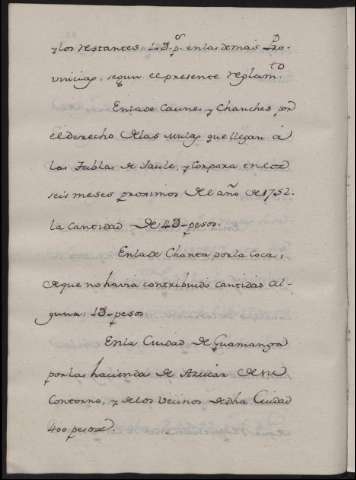 y los restantes 1D p.s en las demas Pro-
vincias, segun el presente reglam.to
En la de Canes, y Chanches por
el derecho de las Mulas que llegan à
la Tabla de Saule, y Corpora en los
seis meses proximos del año de 1752.
la Cantidad de 4D pesos.
En la de Chanta por la Coca,
de que no havia contribuido cantidad al-
guna 1D pesos
En la Ciudad de Guamanga
por las haciendas de Azucar de su
Contorno, y de los Vecinos de dha Ciudad
400 pesos.